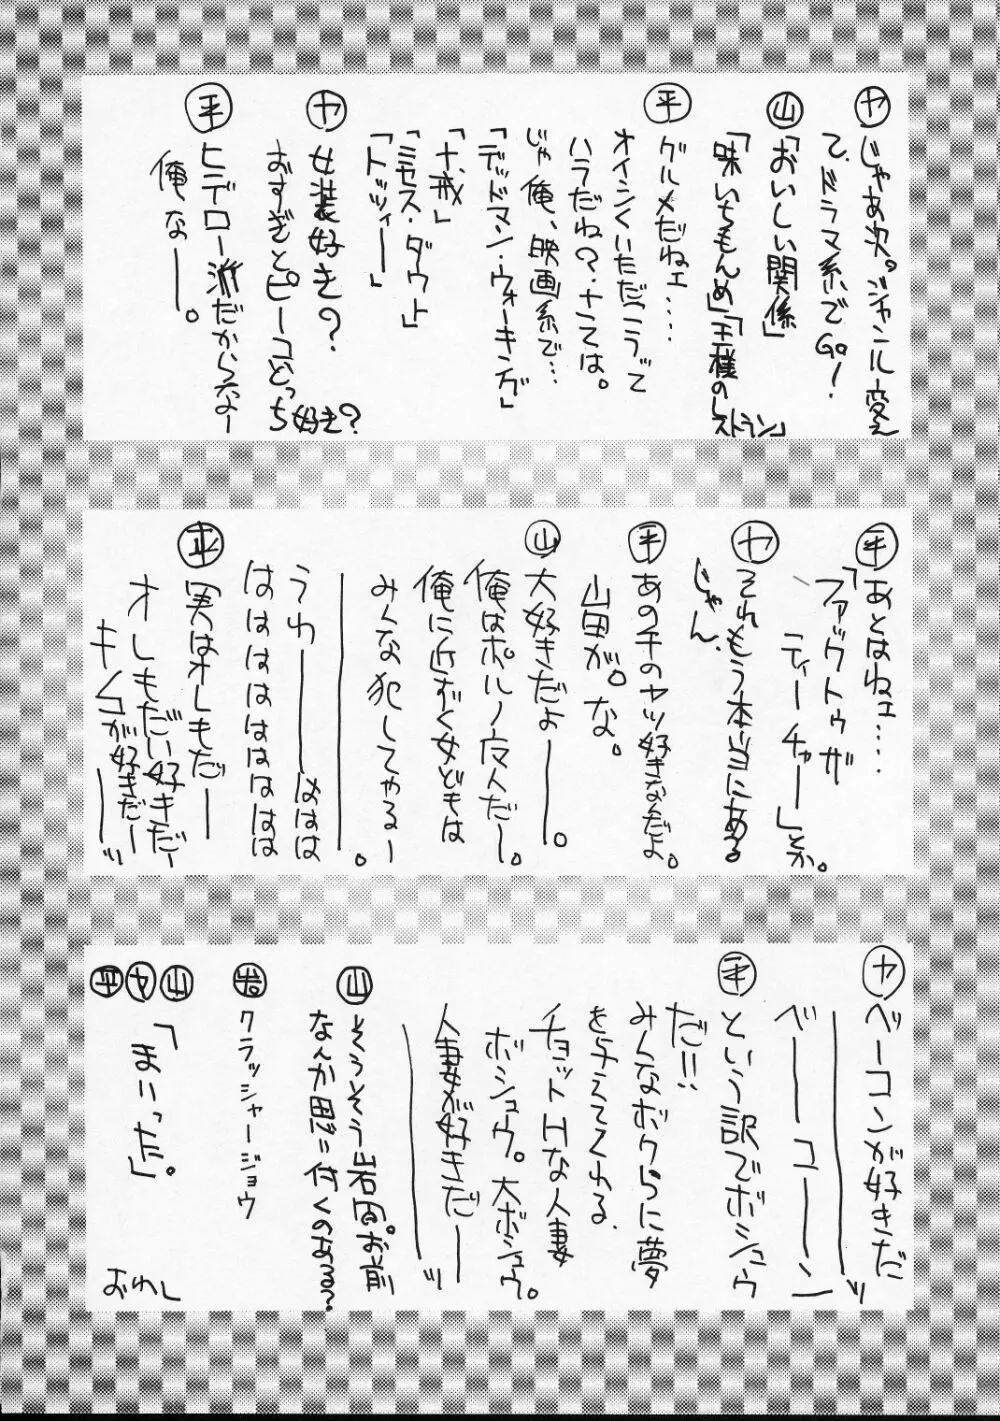 ヤ じゃあ次。ジャンル変え
て、ドラマ系でGo!
山 「おいしい関係」
「味いちもんめ」「王様のレストラン」
平 グルメだねェ…。
オイシくいただこうって
ハラだね?さては。
じゃ俺、映画系で…
「デッドマン・ウォーキング」
「十戒」
「ミセス・ダウト」
「トッツィー」
ヤ 女装好き?
おすぎとピーコどっち好き?
平 ヒデロー派だからなー
俺なー。
平 あとはねェ…
「ファックトゥザ
ティーチャー」とか。
ヤ それもう本当にある
じゃん、
平 あのチのヤツ好きなんだよ。
山田が。な。
山 大好きだよー。
俺はポルノ廃人だー。
俺に近ずく女どもは
みんな犯してやるー
ー。
うわーははは
はははははははは
平 実はオレもだー
オレもだい好きだー
キムコが好きだー
ーッ
ヤ ベーコンが好きだ
ーッ
ベーコーン
平 という訳でボシュウ
だ!!
みんなボクらに夢
を与えてくれる、
チョットHな人妻
ボシュウ。大ボシュウ。
人妻が好きだー
ーッ
山 そうそう岩田。お前
なんか思い付くのある?
岩 クラッシャージョウ
山ヤ平 「まいった。」
おわし